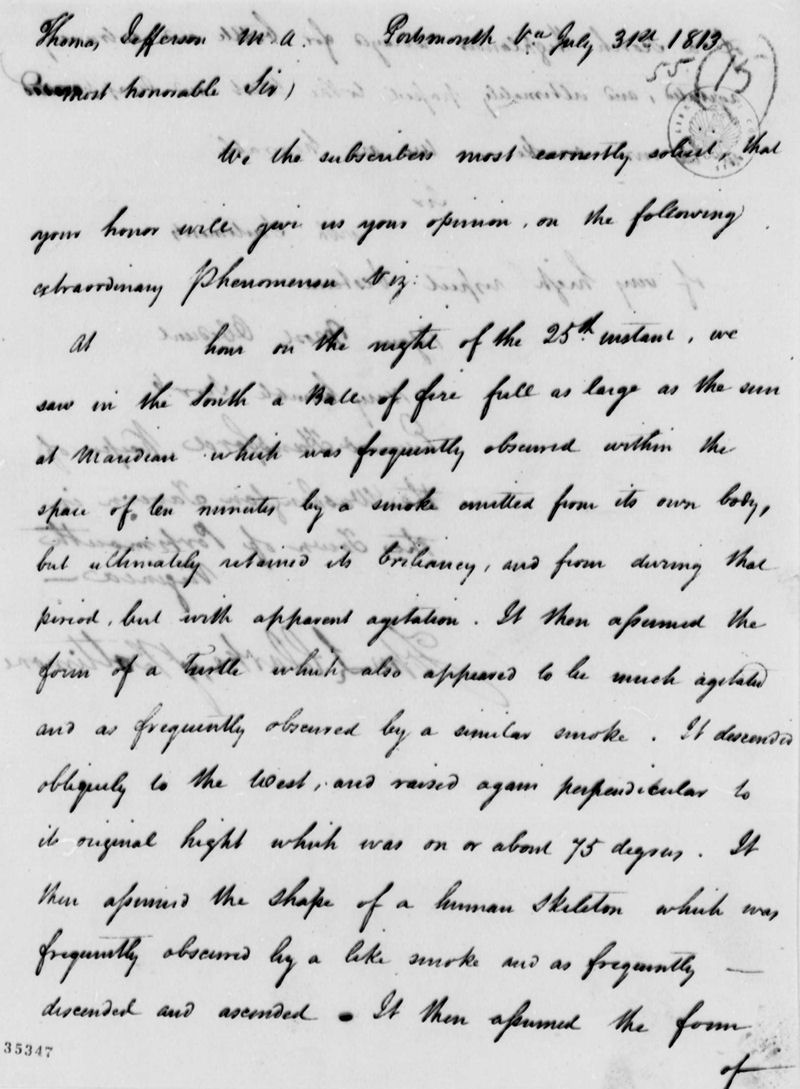 Thomas Jefferson M. A. Portsmouth Va July 31st 1813
55 (15)
most honorable Sir)
We the subscribers most earnestly solicit, that
your honor will give us your opinion, on the following
extraordinary Phenomenon Viz:
At hour on the night of the 25th instant, we
saw in the South a Ball of fire full as large as the sun
at Maridian which was frequently obscured within the
space of ten minutes by a smoke emitted from its own body,
but ultimately retained its briliancy, and from during that
period, but with apparent agitation. It then assumed the
form of a Turtle which also appeared to be much agitated
and as frequently obscured by a similar smoke. It descended
obliquely to the West, and raised again perpendicular to
its original hight which was on or about 75 degrees. It
then assumed the shape of a human skeleton which was
frequently obscured by a like smoke and as frequently —
descended and ascended. It then assumed the form
of
35347